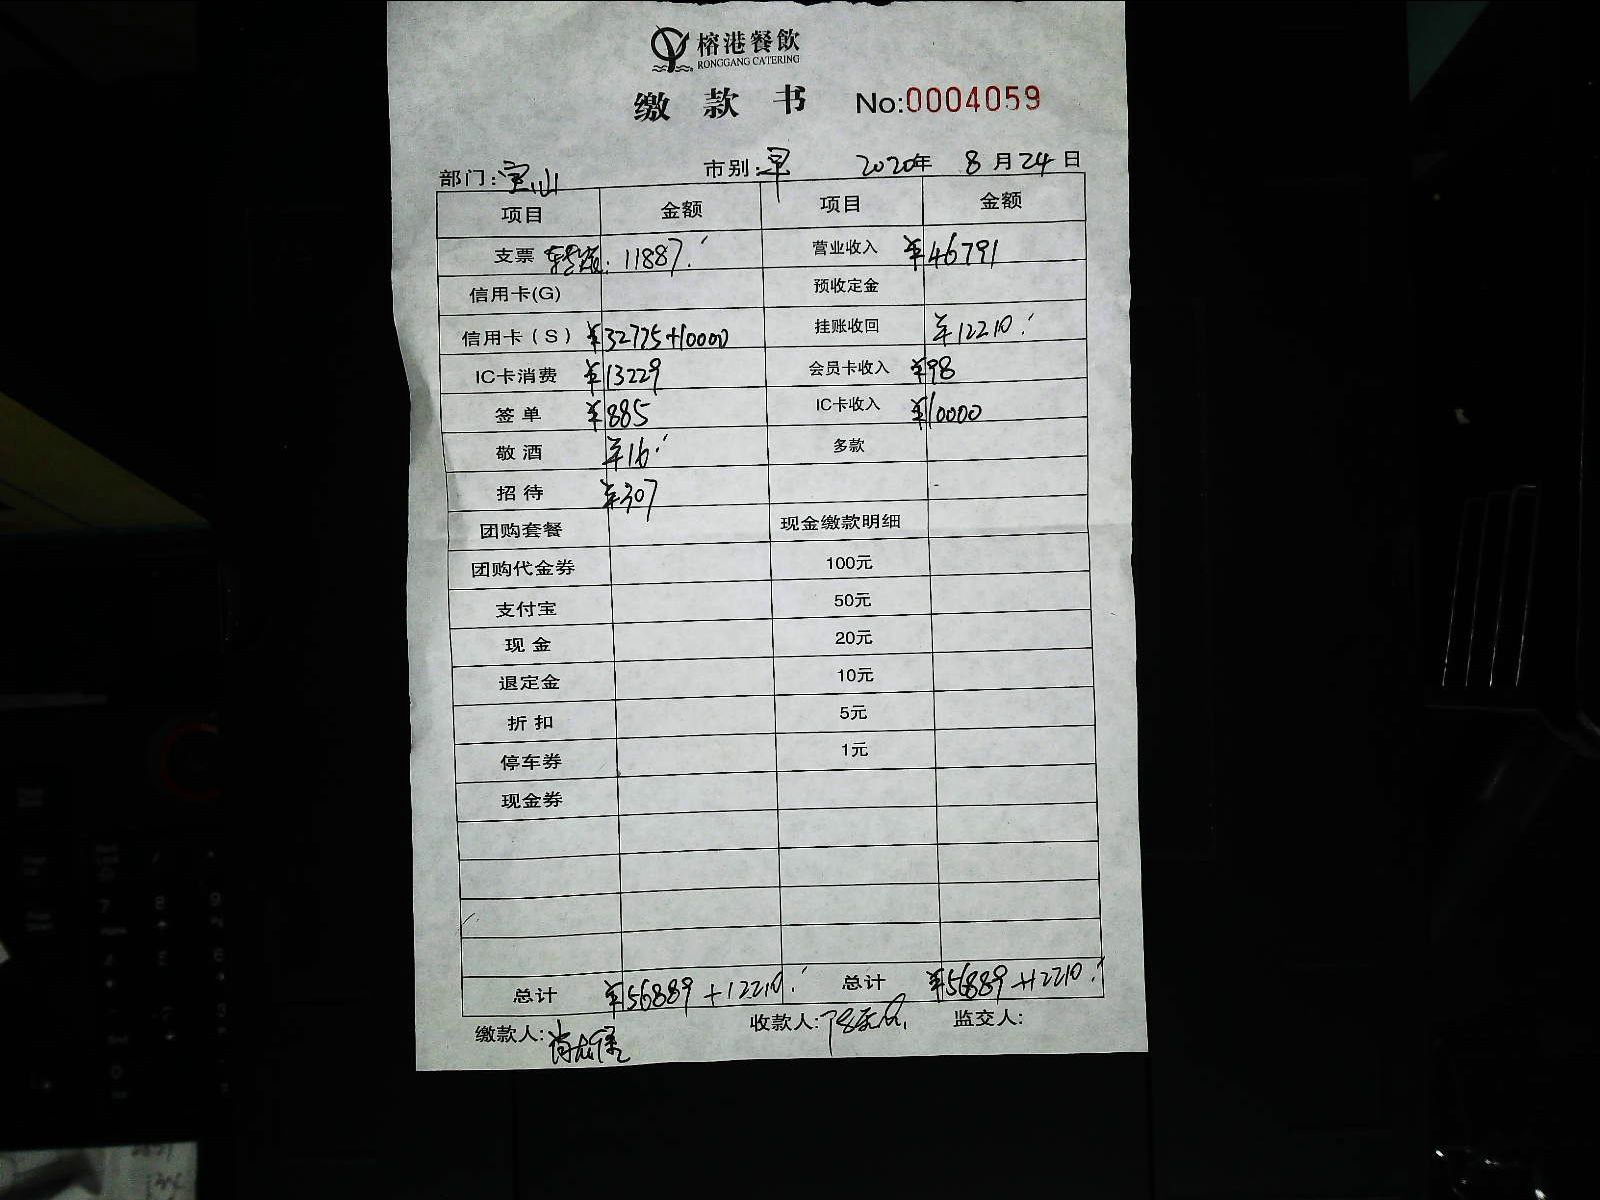 榕港餐飲
RONGGANG CATERING
缴款书 No:0004059
部门:宝山 市别:早 2020年 8月24日
项目 金额 项目 金额
支票 转账: 11887. 营业收入 ¥46791
信用卡(G) 预收定金
信用卡（S）¥32775+10000 挂账收回 ¥12210.
IC卡消费 ¥13229 会员卡收入 ¥98
签单 ¥885 IC卡收入 ¥10000
敬酒 ¥16. 多款
招待 ¥307
团购套餐 现金缴款明细
团购代金券 100元
支付宝 50元
现金 20元
退定金 10元
折扣 5元
停车券 1元
现金券
总计 ¥56889+12210. 总计 ¥56889+12210.
缴款人: 收款人: 监交人: